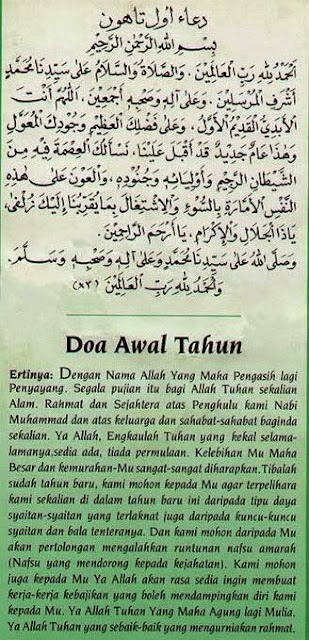 دعاء اول تاهون
بِسْمِ اللهِ الرَّحْمٰنِ الرَّحِيْمِ
اَلْحَمْدُ لِلّٰهِ رَبِّ الْعَالَمِيْنَ . وَالصَّلَاةُ وَالسَّلَامُ عَلَى سَيِّدِنَا مُحَمَّدٍ
أَشْرَفِ الْمُرْسَلِيْنَ . وَعَلَى آلِهِ وَصَحْبِهِ أَجْمَعِيْنَ . اَللّٰهُمَّ أَنْتَ
الْأَبَدِيُّ الْقَدِيْمُ الْأَوَّلُ . وَعَلَى فَضْلِكَ الْعَظِيْمِ وَجُوْدِكَ الْمُعَوَّلُ
وَهٰذَا عَامٌ جَدِيْدٌ قَدْ أَقْبَلَ عَلَيْنَا . نَسْأَلُكَ الْعِصْمَةَ فِيْهِ مِنَ
الشَّيْطَانِ الرَّجِيْمِ وَأَوْلِيَائِهِ وَجُنُوْدِهِ . وَالْعَوْنَ عَلَى هٰذِهِ
النَّفْسِ الْأَمَّارَةِ بِالسُّوْءِ وَالْاِشْتِغَالِ بِمَا يُقَرِّبُنَا إِلَيْكَ زُلْفَى .
يَاذَا الْجَلَالِ وَالْإِكْرَامِ . يَا أَرْحَمَ الرَّاحِمِيْنَ .
وَصَلَّى اللهُ عَلَى سَيِّدِنَا مُحَمَّدٍ وَعَلَى آلِهِ وَصَحْبِهِ وَسَلَّمَ .
وَالْحَمْدُ لِلّٰهِ رَبِّ الْعَالَمِيْنَ (٣×)
Doa Awal Tahun
Ertinya: Dengan Nama Allah Yang Maha Pengasih lagi
Penyayang. Segala pujian itu bagi Allah Tuhan sekalian
Alam. Rahmat dan Sejahtera atas Penghulu kami Nabi
Muhammad dan atas keluarga dan sahabat-sahabat baginda
sekalian. Ya Allah, Engkaulah Tuhan yang kekal selama-
lamanya,sedia ada, tiada permulaan. Kelebihan Mu Maha
Besar dan kemurahan-Mu sangat-sangat diharapkan.Tibalah
sudah tahun baru, kami mohon kepada Mu agar terpelihara
kami sekalian di dalam tahun baru ini daripada tipu daya
syaitan-syaitan yang terlaknat juga daripada kuncu-kuncu
syaitan dan bala tenteranya. Dan kami mohon daripada Mu
akan pertolongan mengalahkan runtunan nafsu amarah
(Nafsu yang mendorong kepada kejahatan). Kami mohon
juga kepada Mu Ya Allah akan rasa sedia ingin membuat
kerja-kerja kebajikan yang boleh mendampingkan diri kami
kepada Mu. Ya Allah Tuhan Yang Maha Agung lagi Mulia.
Ya Allah Tuhan yang sebaik-baik yang mengurniakan rahmat.